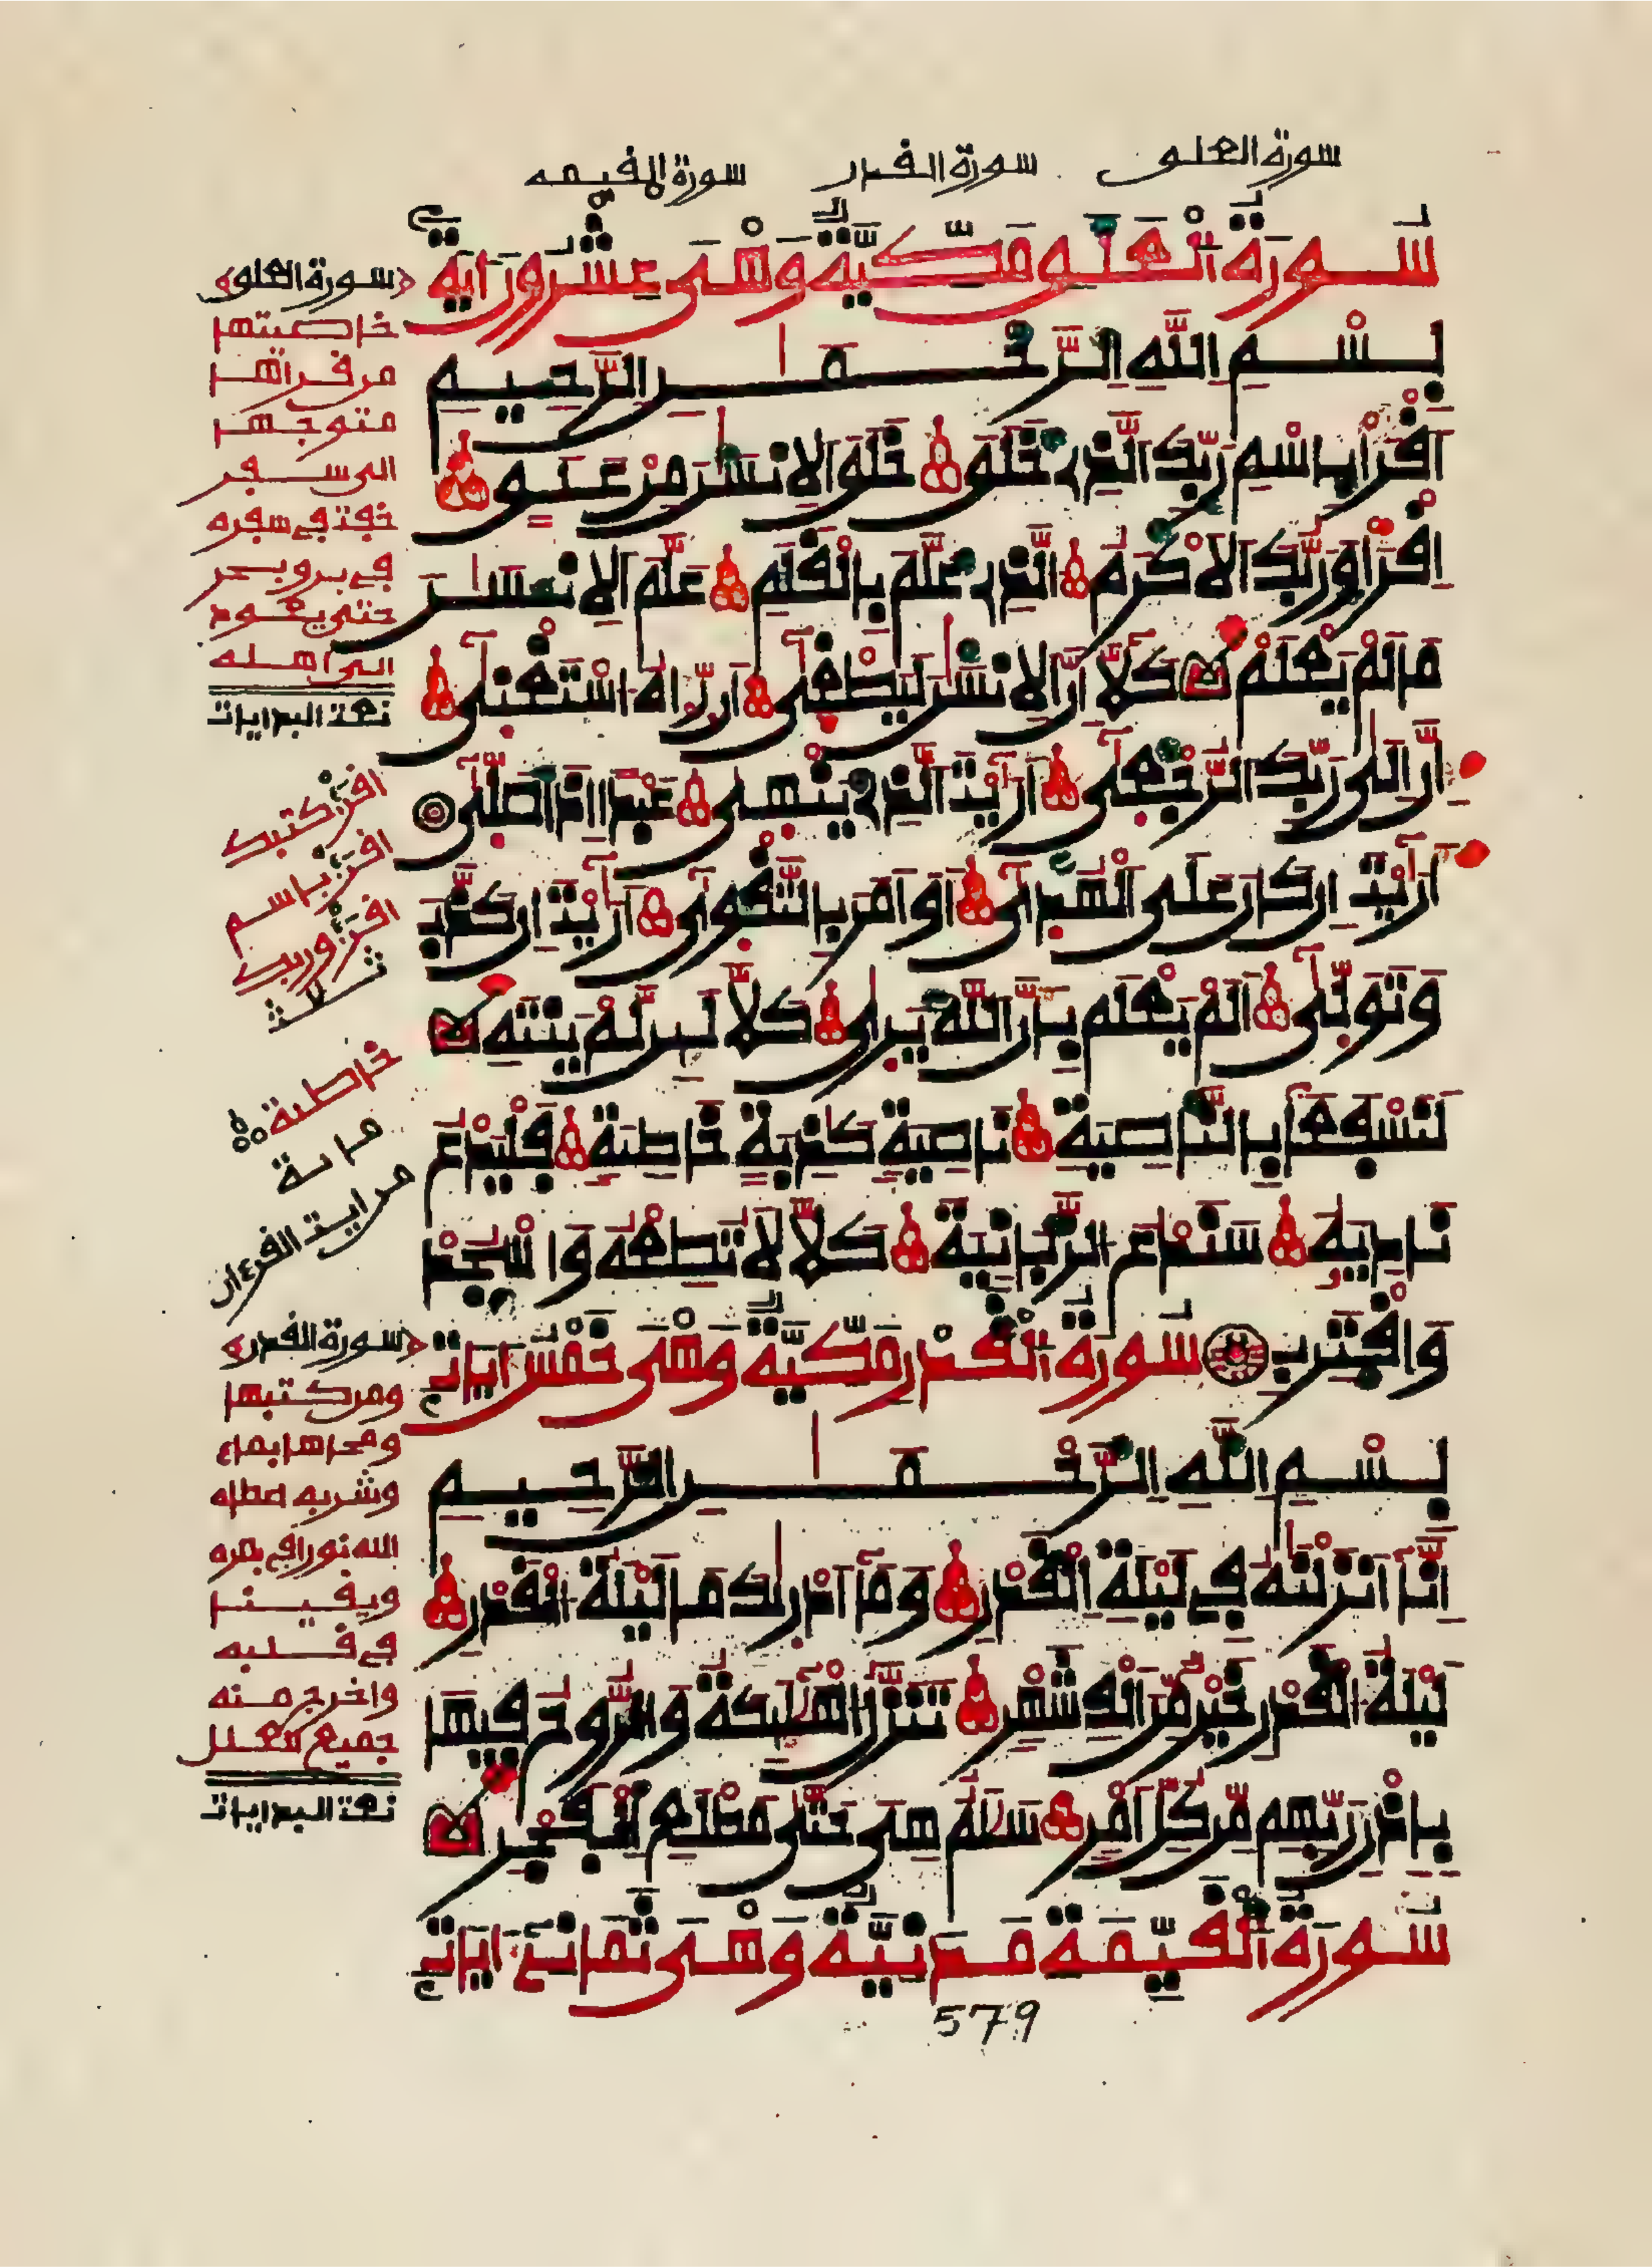 سورة العلو سورة الفدر سورة الفيمه
سُورَةُ الْعَلَو مَكِّيَّةٌ وَهْىَ عِشْرُونَ ءَايَةً
بِسْمِ اللَّهِ الرَّحْمَٰنِ الرَّحِيمِ
اِفْرَأْ بِاسْمِ رَبِّكَ الَّذِے خَلَوَ خَلَوَ الِانسَٰنَ مِنْ عَلَوٍ
اِفْرَأْ وَرَبُّكَ الَاكْرَمُ الَّذِے عَلَّمَ بِالْفَلَمِ عَلَّمَ الِانسَٰنَ
مَا لَمْ يَعْلَمْ كَلَّا إِنَّ الِانسَٰنَ لَيَطْغَىٰ أَن رَّءَاهُ اسْتَغْنَىٰ
إِنَّ إِلَىٰ رَبِّكَ الرُّجْعَىٰ أَرَٰيْتَ الَّذِے يَنْهَىٰ عَبْداً اِذَا صَلَّىٰ
أَرَٰيْتَ إِن كَانَ عَلَى الْهُدَىٰ أَوَ اَمَرَ بِالتَّفْوَىٰ أَرَٰيْتَ إِن كَذَّبَ
وَتَوَلَّىٰ أَلَمْ يَعْلَم بِأَنَّ اللَّهَ يَرَىٰ كَلَّا لَئِن لَّمْ يَنتَهِ
لَنَسْفَعاً بِالنَّاصِيَةِ نَاصِيَةٍ كَٰذِبَةٍ خَاطِئَةٍ فَلْيَدْعُ
نَادِيَهُ سَنَدْعُ الزَّبَانِيَةَ كَلَّا لَا تُطِعْهُ وَاسْجُدْ
وَافْتَرِب سُورَةُ الْفَدْرِ مَكِّيَّةٌ وَهْىَ خَمْسُ ءَايَاتٍ
بِسْمِ اللَّهِ الرَّحْمَٰنِ الرَّحِيمِ
إِنَّا أَنزَلْنَٰهُ فِے لَيْلَةِ الْفَدْرِ وَمَا أَدْرَىٰكَ مَا لَيْلَةُ الْفَدْرِ
لَيْلَةُ الْفَدْرِ خَيْرٌ مِّنَ اَلْفِ شَهْرٍ تَنَزَّلُ الْمَلَٰئِكَةُ وَالرُّوحُ فِيهَا
بِإِذْنِ رَبِّهِم مِّن كُلِّ أَمْرٍ سَلَٰمٌ هِىَ حَتَّىٰ مَطْلَعِ الْفَجْرِ
سُورَةُ الْفَيِّمَةِ مَدَنِيَّةٌ وَهْىَ ثَمَانِے ءَايَاتٍ
579
سورة العلو
خاصيتها
من فراها
متوجها
الى سفر
خفت في سفره
في بر وبحر
حتى يعود
الى اهله
نعت البدايات
افرأ كتبك
افرأ باسم
افرأ وربك
ثلاث
خاطئة
مائة
من اية الفرءان
سورة الفدر
ومن كتبها
ومحاها بماء
وشربه عطاه
الله نورا في بصره
ويفينا
في فلبه
واخرج منه
جميع العلل
نعت البدايات